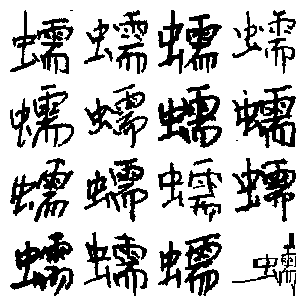 蠕蠕蠕蠕
蠕蠕蠕蠕
蠕蠕蠕蠕
蠕蠕蠕蠕